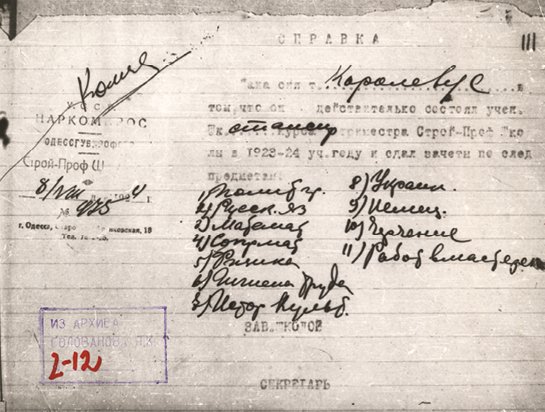 Копия
СПРАВКА
111
У.С.С.Р.
НАРКОМПРОС
ОДЕССГУБПРОФОБР
Строй-Проф Ш
8/VIII 4 г.
№ 975
г. Одесса, 18
Дана сия т. Королеву С. в
том, что он действительно состоял учен.
курса триместра Строй-Проф.Шко
лы в 1923-24 уч.году и сдал зачеты по след
предметам:
1) Политгр.
2) Русск. яз
3) Математ
4) Сопромат
5) Физика
6) Гигиена труда
7) Истор. культ.
8) Украин.
9) Немец.
10) Черчение
11) Работа в мастерск
ЗАВ.ШКОЛОЙ
СЕКРЕТАРЬ
ИЗ АРХИВА
ГОЛОВАНОВА Я.К.
2-12